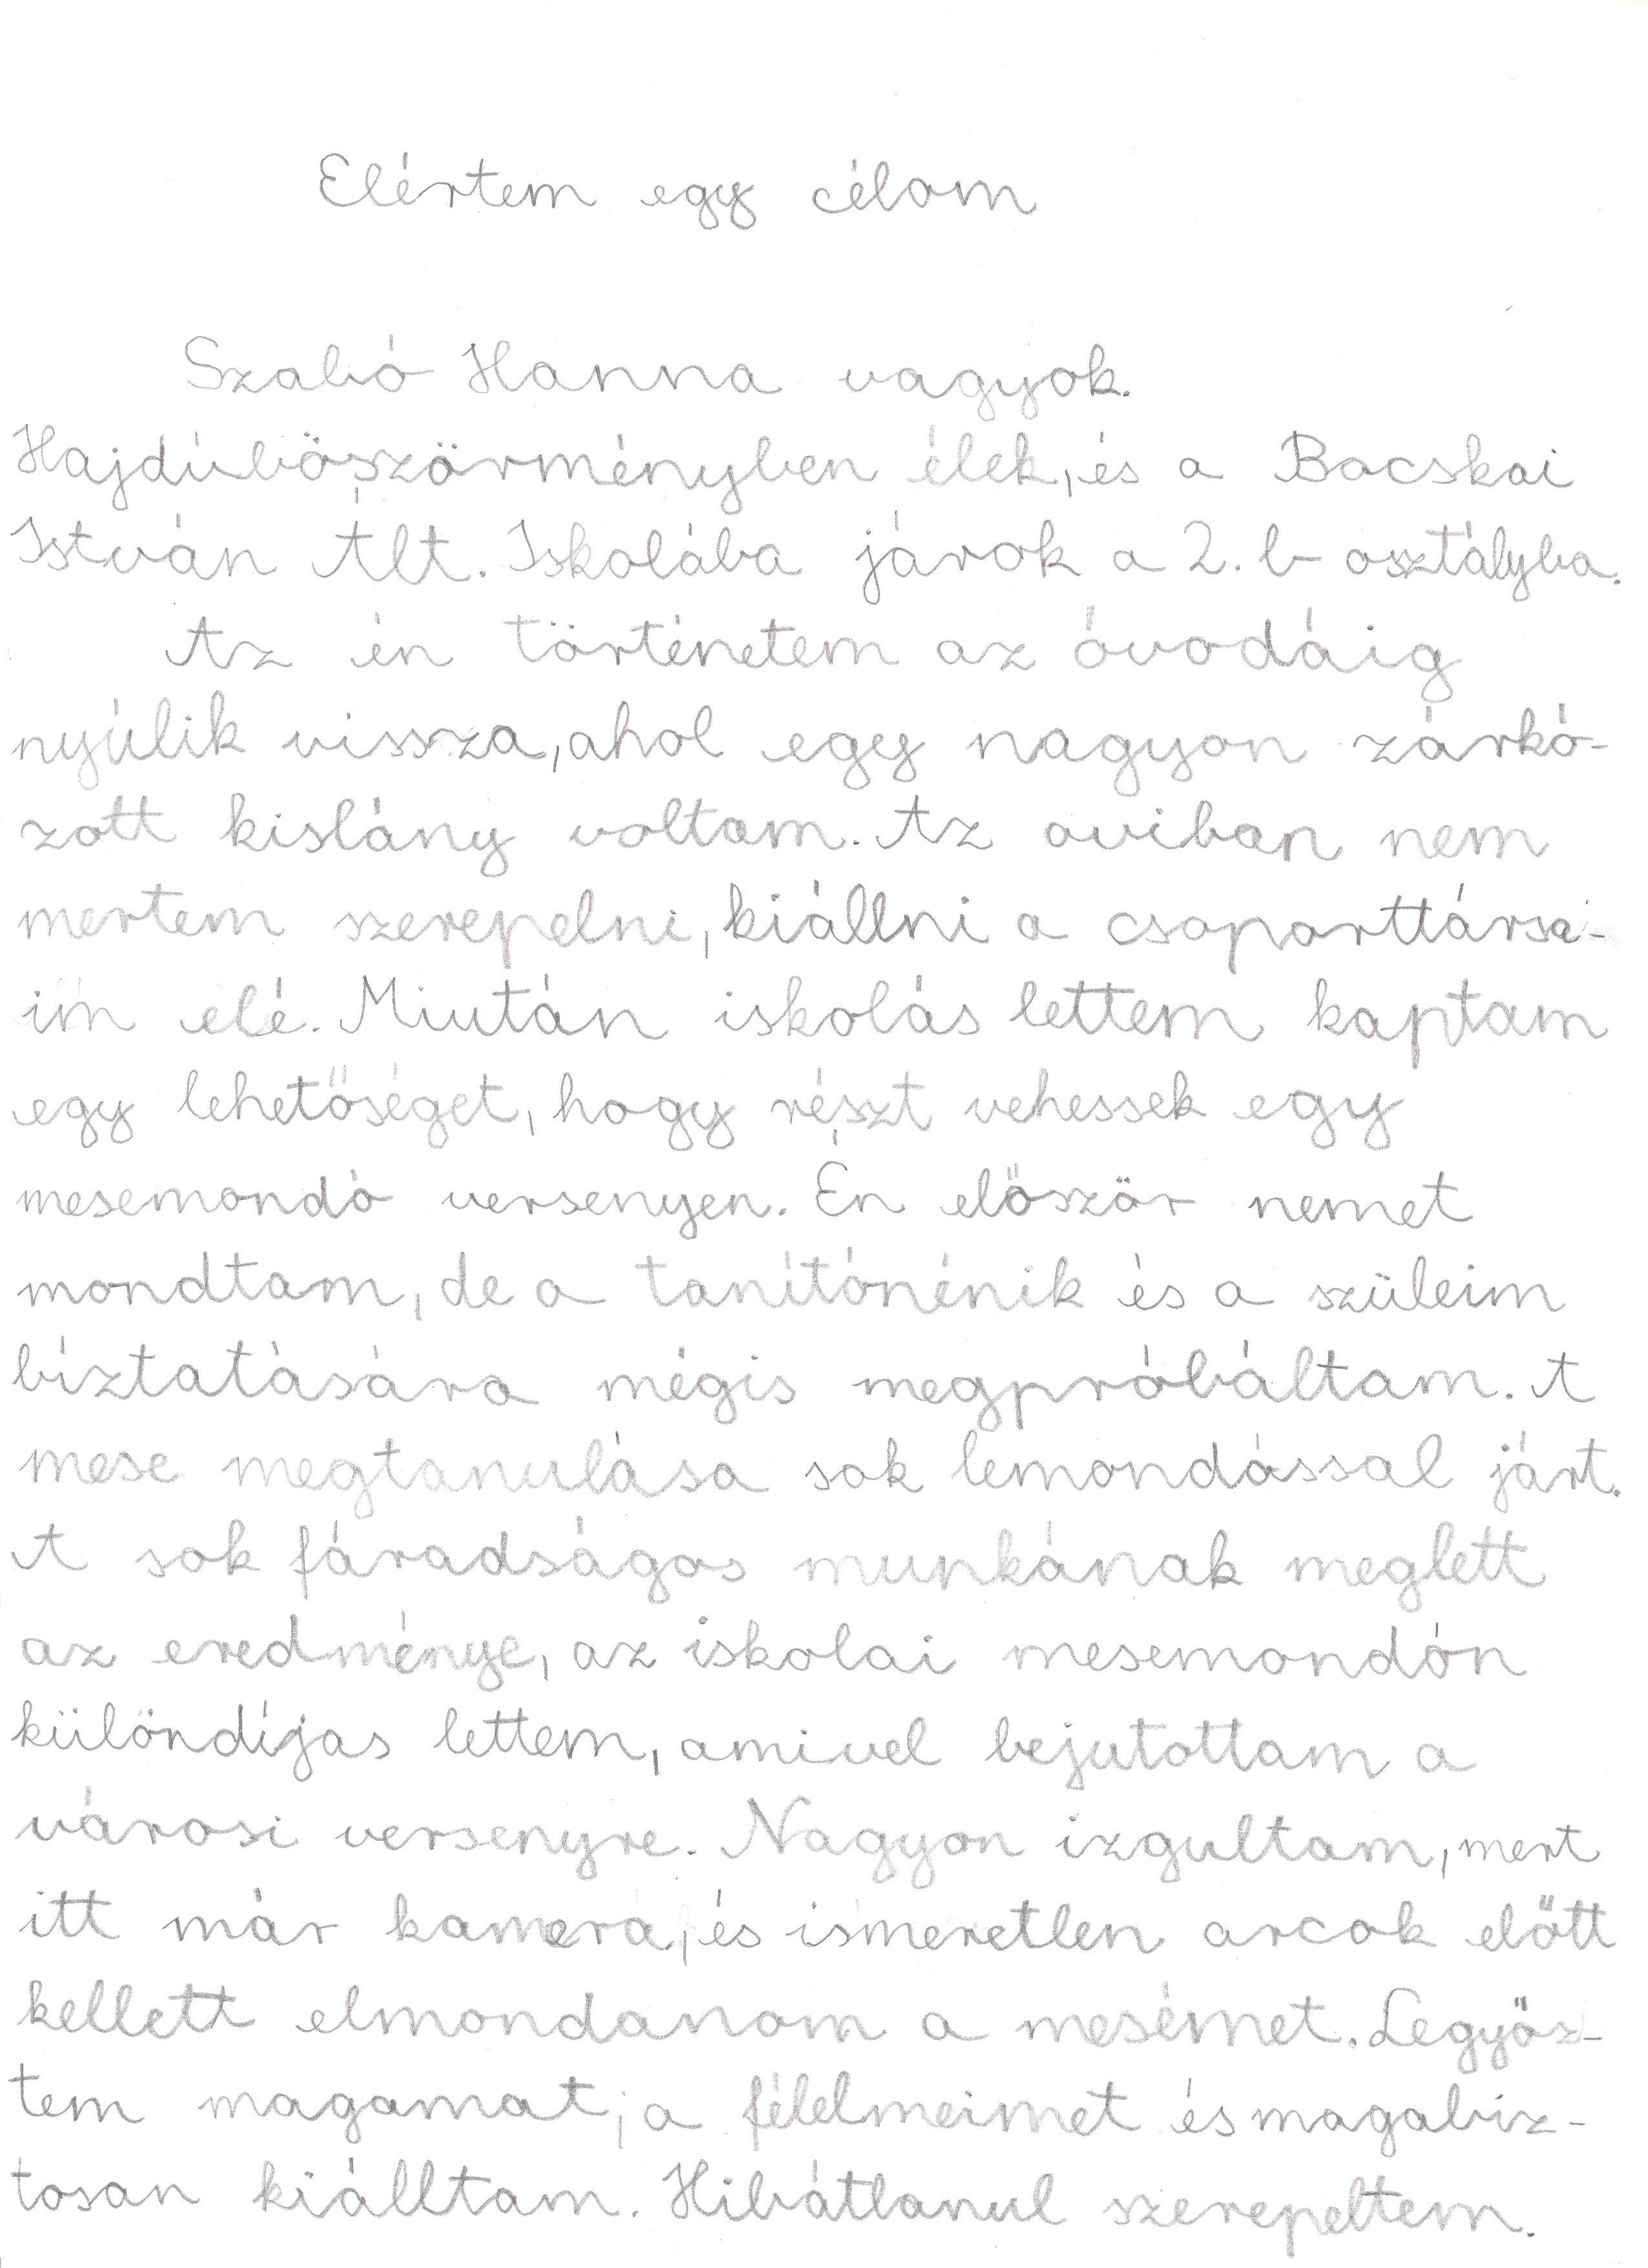 Elértem egy célom
Szabó Hanna vagyok.
Hajdúböszörményben élek, és a Bocskai
István Ált. Iskolába járok a 2. b osztályba.
Az én történetem az óvodáig
nyúlik vissza, ahol egy nagyon zárkó-
zott kislány voltam. Az oviban nem
mertem szerepelni, kiállni a csoporttársa-
im elé. Miután iskolás lettem kaptam
egy lehetőséget, hogy részt vehessek egy
mesemondó versenyen. Én először nemet
mondtam, de a tanítónénik és a szüleim
bíztatására mégis megpróbáltam. A
mese megtanulása sok lemondással járt.
A sok fáradságos munkának meglett
az eredménye, az iskolai mesemondón
különdíjas lettem, amivel bejutottam a
városi versenyre. Nagyon izgultam, mert
itt már kamera, és ismeretlen arcok előtt
kellett elmondanom a mesémet. Legyőz-
tem magamat, a félelmeimet és magabiz-
tosan kiálltam. Hibátlanul szerepeltem.